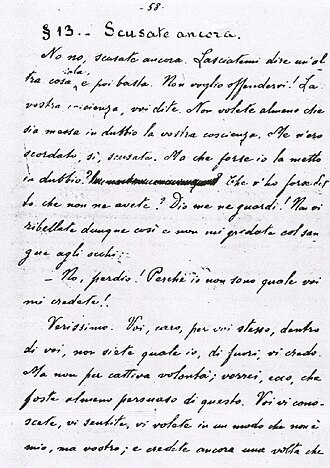 - 58 -
§ 13. - Scusate ancora.
No no, scusate ancora. Lasciatemi dire un'al
tra cosa sola, e poi basta. Non voglio offendervi! La
vostra coscienza, voi dite. Non volete almeno che
sia messa in dubbio la vostra coscienza. Me n'ero
scordato, sì, scusate. Ma che forse io la metto
in dubbio? Che v'ho forse det
to che non ne avete? Dio me ne guardi! Ma vi
ribellate dunque così e non mi col san
gue agli occhi:
- No, perdio! Perchè io non sono quale voi
mi credete!
Verissimo. Voi, caro, per voi stesso, dentro
di voi, non siete quale io, di fuori, vi credo.
Ma non per cattiva volontà; vorrei, ecco, che
foste almeno persuaso di questo. Voi vi cono-
scete, vi sentite, vi volete in un modo che non è
mio, ma vostro; e credete ancora una volta che